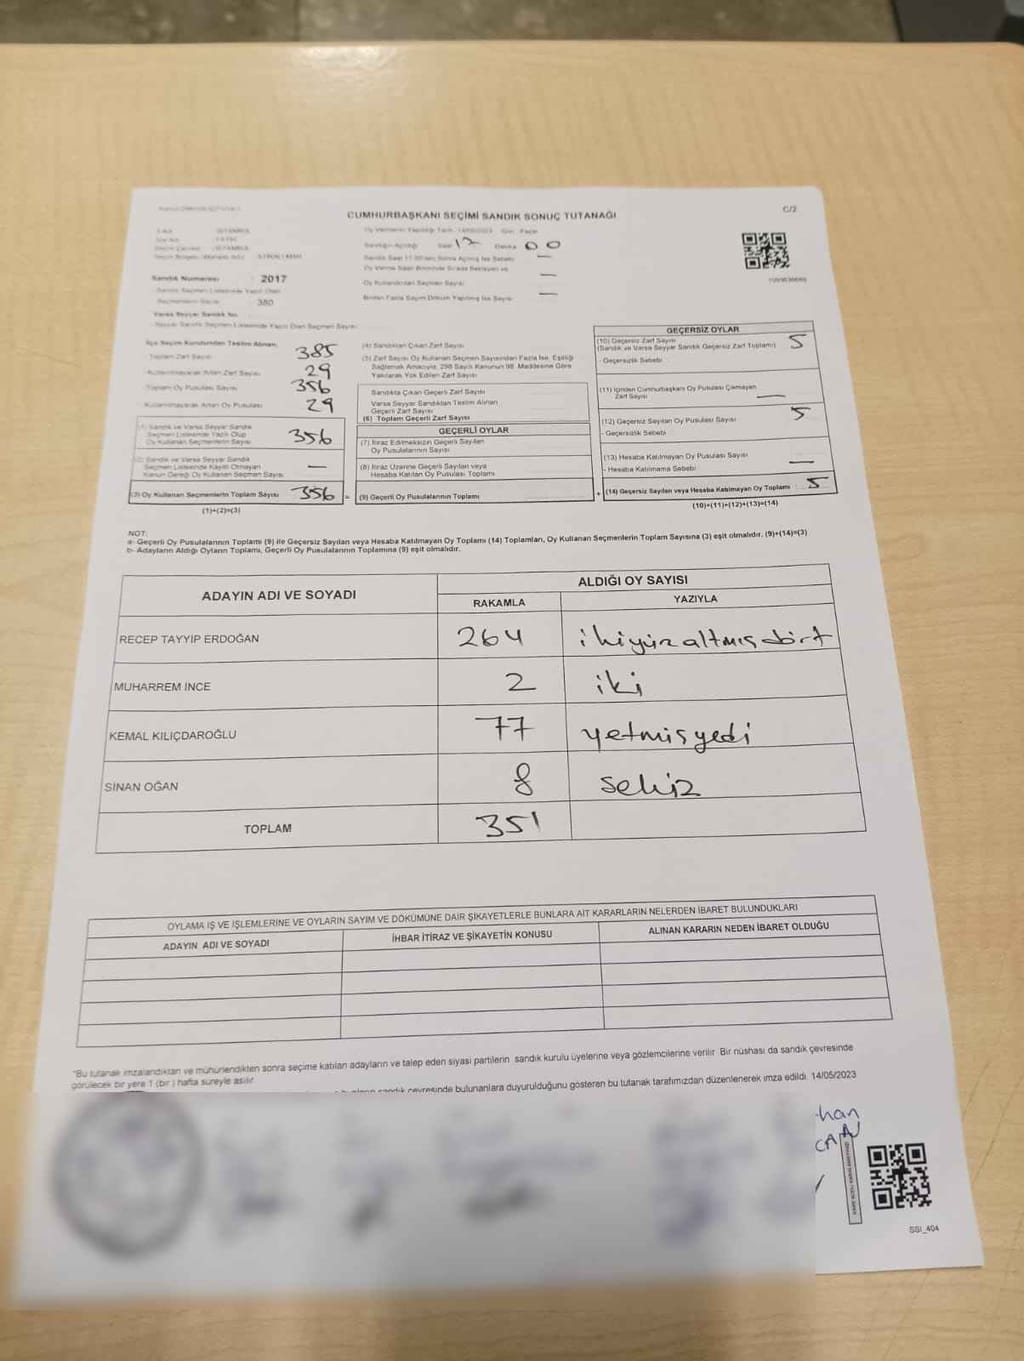 C/2
CUMHURBAŞKANI SEÇİMİ SANDIK SONUÇ TUTANAĞI
Saat 17 Dakika 00
Sandık Numarası 2017
380
İlçe Seçim Kurulundan Teslim Alınan,
Toplam Zarf Sayısı 385
Kullanılmayarak Artan Zarf Sayısı 29
Toplam Oy Pusulası Sayısı 356
Kullanılmayarak Artan Oy Pusulası 29
(1) Sandık ve Varsa Seyyar Sandık
Seçmen Listesinde Yazılı Olup
Oy Kullanan Seçmenlerin Sayısı 356
(2) Sandık ve Varsa Seyyar Sandık
Seçmen Listesinde Kayıtlı Olmayan
Kanun Gereği Oy Kullanan Seçmen Sayısı —
(3) Oy Kullanan Seçmenlerin Toplam Sayısı 356 =
(1)+(2)=(3)
(4) Sandıktan Çıkan Zarf Sayısı
(5) Zarf Sayısı Oy Kullanan Seçmen Sayısından Fazla İse, Eşitliği
Sağlamak Amacıyla, 298 Sayılı Kanunun 98. Maddesine Göre
Yakılarak Yok Edilen Zarf Sayısı
Sandıkta Çıkan Geçerli Zarf Sayısı
Varsa Seyyar Sandıktan Teslim Alınan
Geçerli Zarf Sayısı
(6) Toplam Geçerli Zarf Sayısı
GEÇERLİ OYLAR
(7) İtiraz Edilmeksizin Geçerli Sayılan
Oy Pusulalarının Toplamı
(8) İtiraz Üzerine Geçerli Sayılan veya
Hesaba Katılan Oy Pusulaları Toplamı
(9) Geçerli Oy Pusulalarının Toplamı +
GEÇERSİZ OYLAR
(10) Geçersiz Zarf Sayısı 5
(Sandık ve Varsa Seyyar Sandık Geçersiz Zarf Toplamı)
- Geçersizlik Sebebi
(11) İçinden Cumhurbaşkanı Oy Pusulası Çıkmayan
Zarf Sayısı —
(12) Geçersiz Sayılan Oy Pusulası Sayısı 5
- Geçersizlik Sebebi
(13) Hesaba Katılmayan Oy Pusulası Sayısı
- Hesaba Katılmama Sebebi —
(14) Geçersiz Sayılan veya Hesaba Katılmayan Oy Toplamı 5
(10)+(11)+(12)+(13)=(14)
NOT:
a- Geçerli Oy Pusulalarının Toplamı (9) ile Geçersiz Sayılan veya Hesaba Katılmayan Oy Toplamı (14) Toplamları, Oy Kullanan Seçmenlerin Toplam Sayısına (3) eşit olmalıdır. (9)+(14)=(3)
b- Adayların Aldığı Oyların Toplamı, Geçerli Oy Pusulalarının Toplamına (9) eşit olmalıdır.
ADAYIN ADI VE SOYADI
ALDIĞI OY SAYISI
RAKAMLA YAZIYLA
RECEP TAYYİP ERDOĞAN 264 ikiyüzaltmışdört
MUHARREM İNCE 2 iki
KEMAL KILIÇDAROĞLU 77 yetmişyedi
SİNAN OĞAN 8 sekiz
TOPLAM 351
OYLAMA İŞ VE İŞLEMLERİNE VE OYLARIN SAYIM VE DÖKÜMÜNE DAİR ŞİKAYETLERLE BUNLARA AİT KARARLARIN NELERDEN İBARET BULUNDUKLARI
ADAYIN ADI VE SOYADI İHBAR İTİRAZ VE ŞİKAYETİN KONUSU ALINAN KARARIN NEDEN İBARET OLDUĞU
"Bu tutanak imzalandıktan ve mühürlendikten sonra seçime katılan adayların ve talep eden siyasi partilerin sandık kurulu üyelerine veya gözlemcilerine verilir. Bir nüshası da sandık çevresinde
görülecek bir yere 1 (bir) hafta süreyle asılır
sandık çevresinde bulunanlara duyurulduğunu gösteren bu tutanak tarafımızdan düzenlenerek imza edildi. 14/05/2023
SSI_404